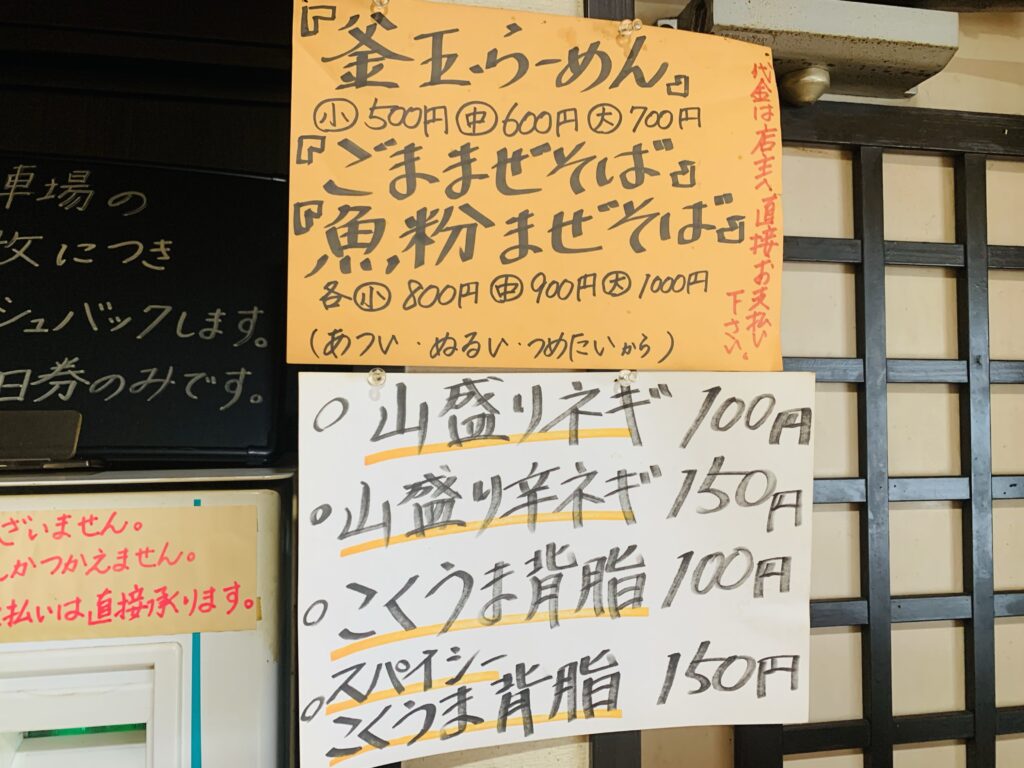 『釜玉らーめん』
小 500円 中 600円 大 700円
『ごままぜそば』
『魚粉まぜそば』
各 小 800円 中 900円 大 1000円
(あつい・ぬるい・つめたいから)
代金は店主へ直接お支払い
下さい。
○ 山盛りネギ 100円
○ 山盛り辛ネギ 150円
○ こくうま背脂 100円
○ スパイシー
こくうま背脂 150円
車場の
枚につき
シュバックします。
日券のみです。
ございません。
しかつかえません。
支払いは直接承ります。